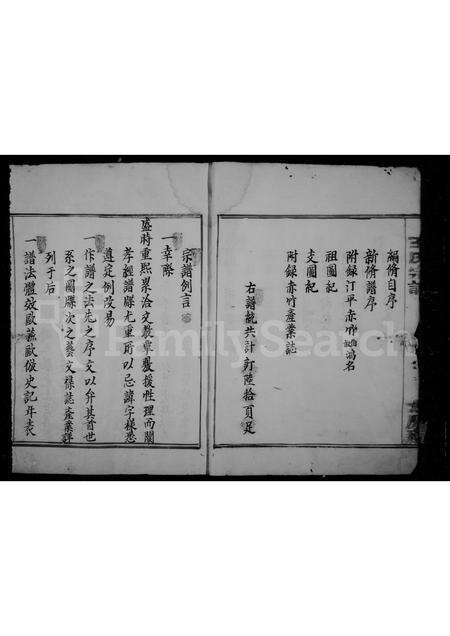 編脩自序
新脩譜序
附録汀平赤竹鴻名
祖圖記
支圖記
附録赤竹產業誌
右譜統共計訂陸拾頁足
宗譜例言
一幸際
盛時重熙累洽文教覃敷援性理而闡
孝經譜牒尤重所以忌諱字様悉
遵定例改易
一作譜之法先之序文以弁其首世
系之圖牒次之藝文様誌產業詳
列于后
一譜法體效歐蘇歐倣史記年表
FamilySearch